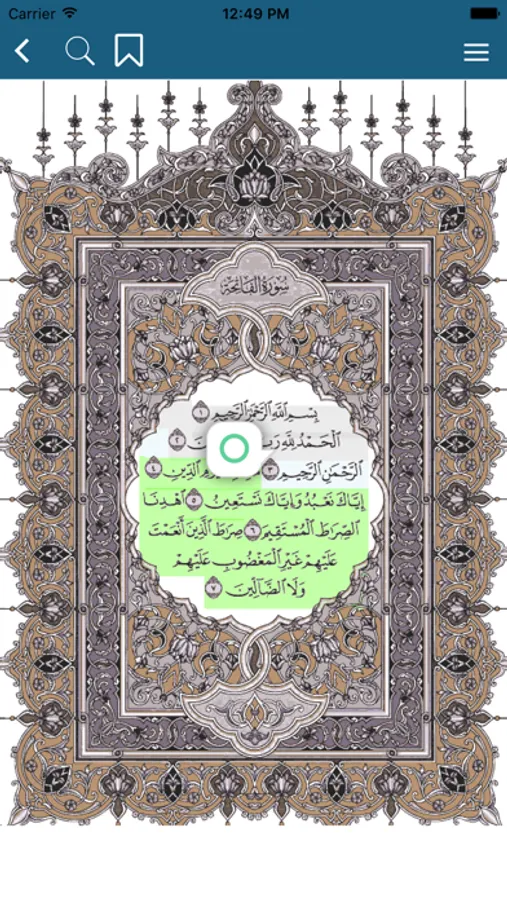 Carrier 12:49 PM
سُورَةُ الفَاتِحَةِ
بِسْمِ ٱللَّهِ ٱلرَّحْمَٰنِ ٱلرَّحِيمِ ١
ٱلْحَمْدُ لِلَّهِ ٢
ٱلرَّحْمَٰنِ ٱلرَّحِيمِ ٣ ٱلدِّينِ ٤
إِيَّاكَ نَعْبُدُ وَإِيَّاكَ نَسْتَعِينُ ٥ ٱهْدِنَا
ٱلصِّرَٰطَ ٱلْمُسْتَقِيمَ ٦ صِرَٰطَ ٱلَّذِينَ أَنْعَمْتَ
عَلَيْهِمْ غَيْرِ ٱلْمَغْضُوبِ عَلَيْهِمْ
وَلَا ٱلضَّآلِّينَ ٧